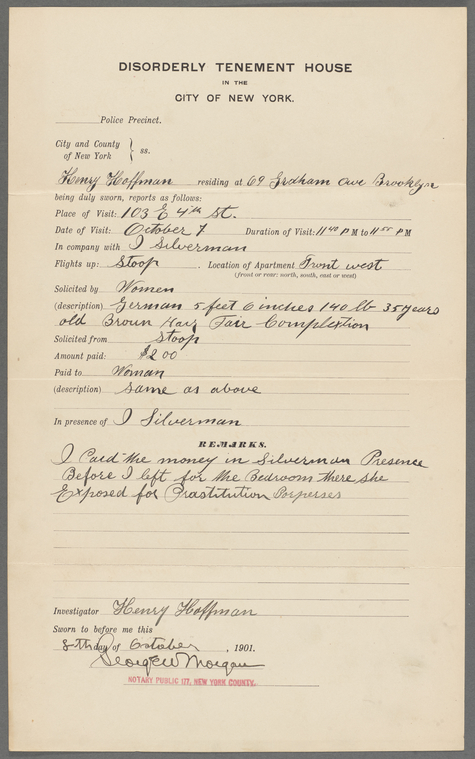 DISORDERLY TENEMENT HOUSE
IN THE
CITY OF NEW YORK.
Police Precinct.
City and County
of New York } ss.
Henry Hoffman residing at 69 Graham Ave Brooklyn
being duly sworn, reports as follows:
Place of Visit: 103 E 4th St.
Date of Visit: October 7 Duration of Visit: 11 40 P M to 11 55 P M
In company with I Silverman
Flights up: Stoop . Location of Apartment Front west
(front or rear: north, south, east or west)
Solicited by Women
(description) German 5 feet 6 inches 140 lb 35 years
old Broun Hair Fair Complection
Solicited from Stoop
Amount paid: $2 00
Paid to Woman
(description) same as above
In presence of I Silverman
REMARKS.
I Paid the money in Silverman Presence
Before I left for the Bedroom there she
Exposed for Prastitution Porperses
Investigator Henry Hoffman
Sworn to before me this
8th day of October , 1901.
George W Morgan
NOTARY PUBLIC 177, NEW YORK COUNTY.